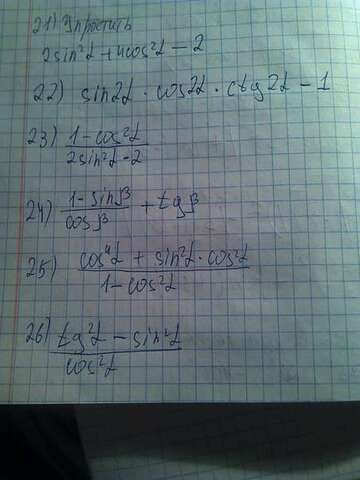 21) Упростить
2sin²α + 4cos²α − 2
22) sin2α · cos2α · ctg2α − 1
23) 1 − cos²α
2sin²α − 2
24) 1 − sinβ + tgβ
cosβ
25) cos⁴α + sin²α · cos²α
1 − cos²α
26) tg²α − sin²α
cos²α